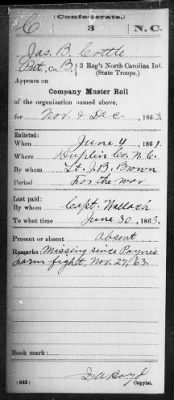 (Confederate.)
C 3 N.C.
Jas. B. Cottle
Pvt, Co. B, 3 Reg't North Carolina Inf.
(State Troops.)
Appears on
Company Muster Roll
of the organization named above,
for Nov & Dec, 1863.
Enlisted:
When June 4, 1861.
Where Duplin Co. N.C.
By whom Lt. J.B. Brown
Period for the war
Last paid:
By whom Capt. Wallach
To what time June 30, 1863.
Present or absent absent
Remarks: Missing since Paynes
farm fight, Nov. 27/63.
Book mark:
(642)
Copyist.